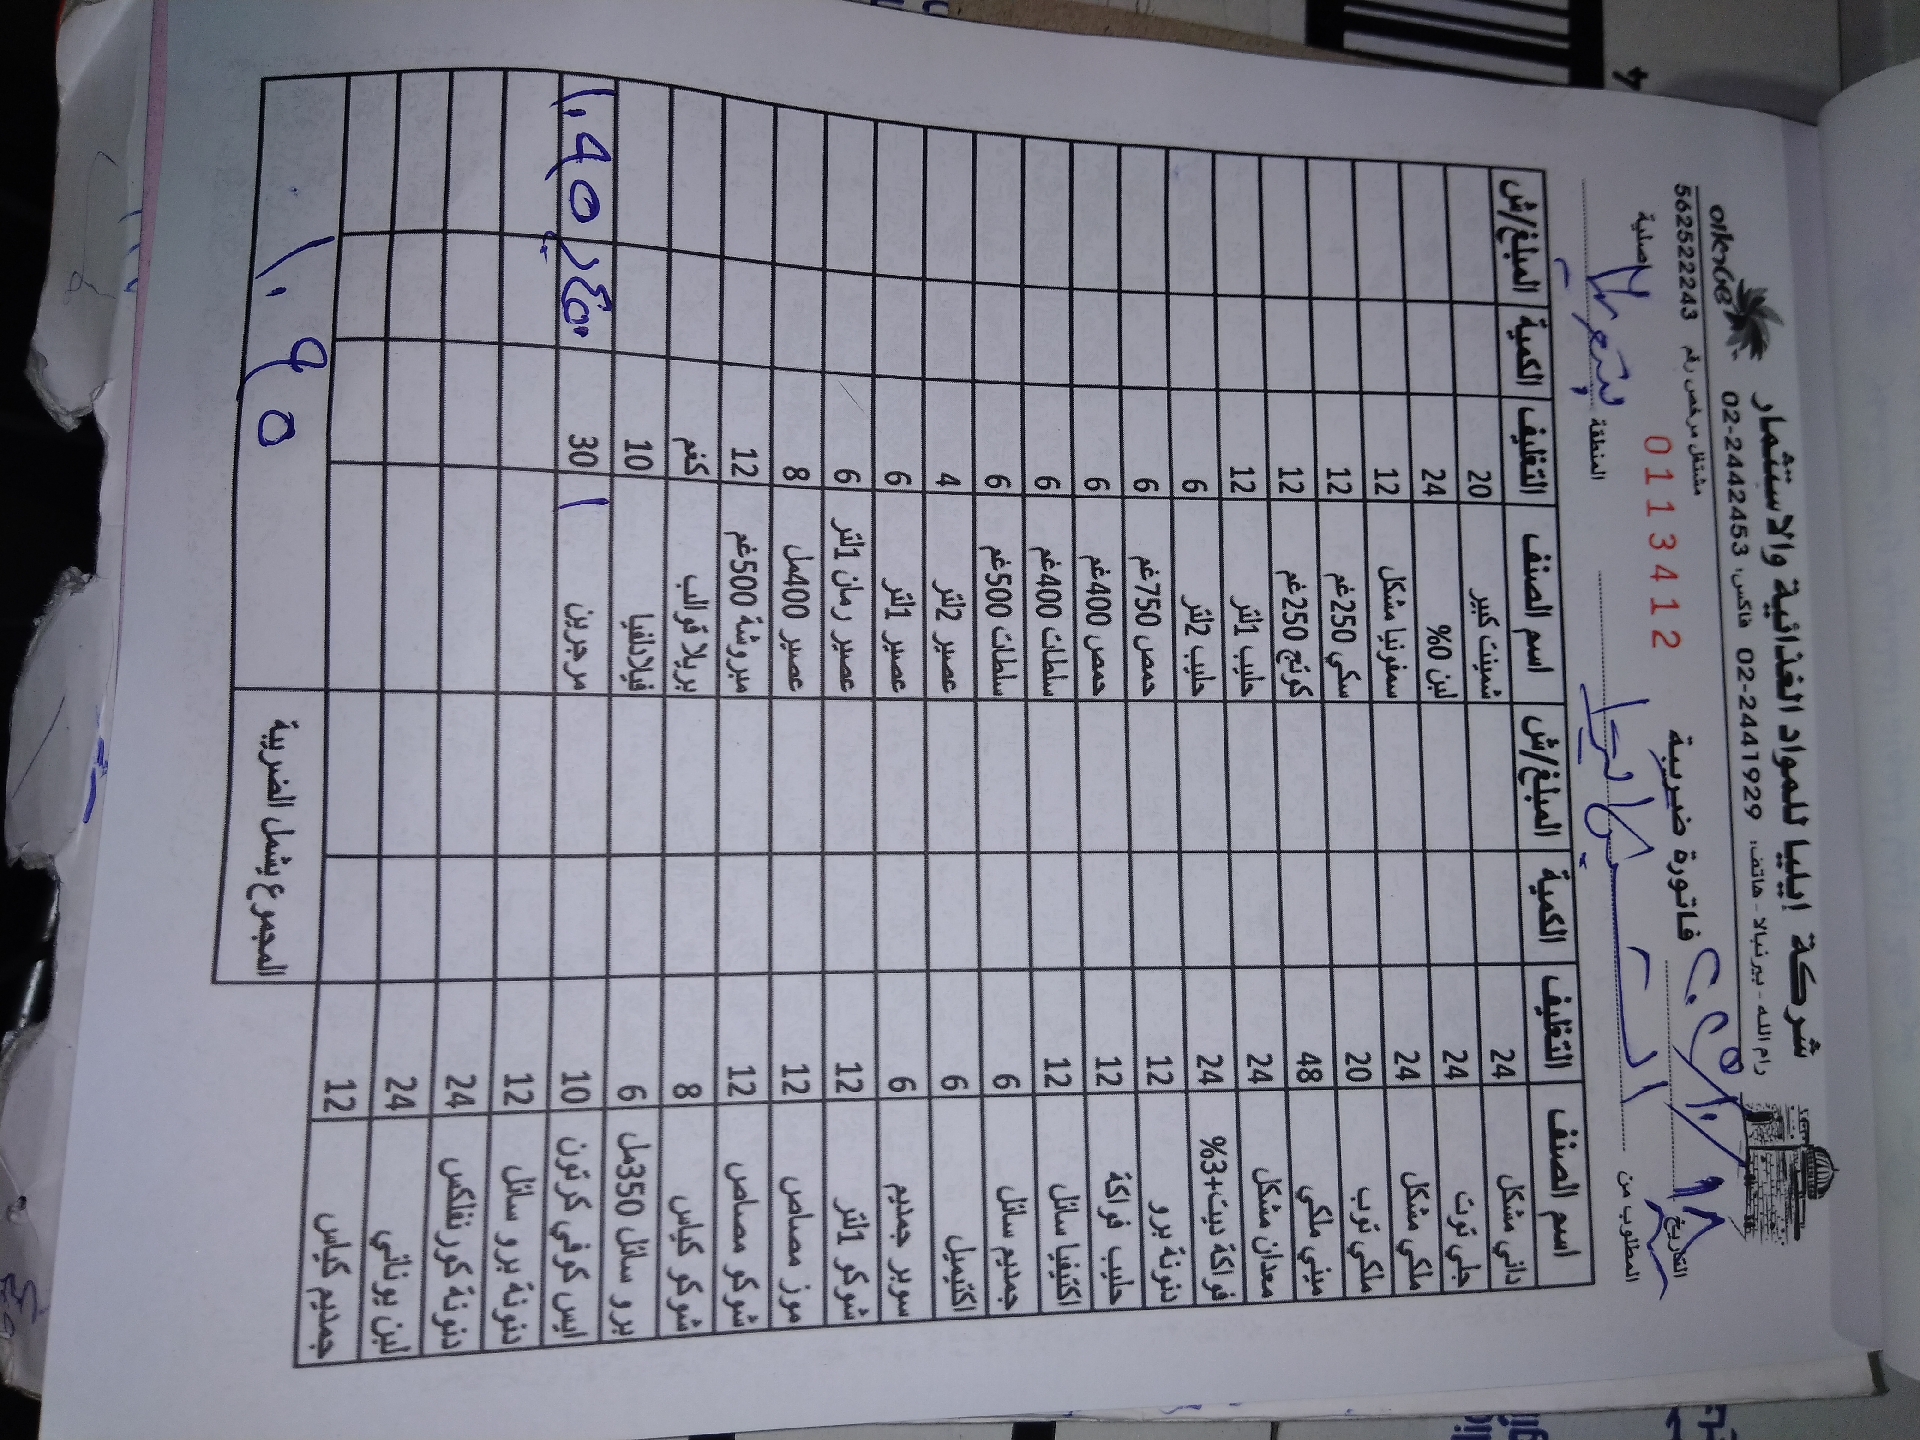 شركة إيليا للمواد الغذائية والاستثمار
رام الله - بيرنبالا - هاتف: 02-2441929 فاكس: 02-2442453
مشتغل مرخص رقم 562522243
التاريخ
فاتورة ضريبية 0113412 اصلية
المطلوب من
المنطقة
اسم الصنف التغليف الكمية المبلغ/ش اسم الصنف التغليف الكمية المبلغ/ش
داني مشكل 24 شمينت كبير 20
جلي توت 24 لبن 0% 24
ملكي مشكل 24 سمفونيا مشكل 12
ملكي توب 20 سكي 250غم 12
ميني ملكي 48 كوتج 250غم 12
معدان مشكل 24 حليب 1لتر 12
فواكة دبت+3% 24 حليب 2لتر 6
دنونة برو 12 حمص 750غم 6
حليب فواكة 12 حمص 400غم 6
اكتيفيا سائل 12 سلطات 400غم 6
جمديم سائل 6 سلطات 500غم 6
اكتيميل 6 عصير 2لتر 4
سوبر جمديم 6 عصير 1لتر 6
شوكو 1لتر 12 عصير رمان 1لتر 6
موز مصاص 12 عصير 400مل 8
شوكو مصاص 12 مبروشة 500غم 12
شوكو كياس 8 بريلا قوالب كغم
برو سائل 350مل 6 فيلادلفيا 10
ايس كوفي كرتون 10 مرجرين 30
دنونة برو سائل 12
دنونة كورنفلكس 24
لبن يوناني 24
جمديم كياس 12
المجموع يشمل الضريبة ١٠٩٥